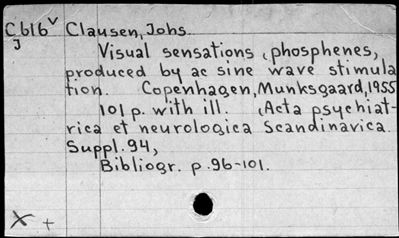 C616v Clausen, Johs.
J
Visual sensations (phosphenes,
produced by ac sine wave stimula
tion. Copenhagen, Munksgaard, 1955
101 p. with ill. (Acta psychiat-
rica et neurologica Scandinavica.
Suppl. 94,
Bibliogr. p. 96-101.
X +